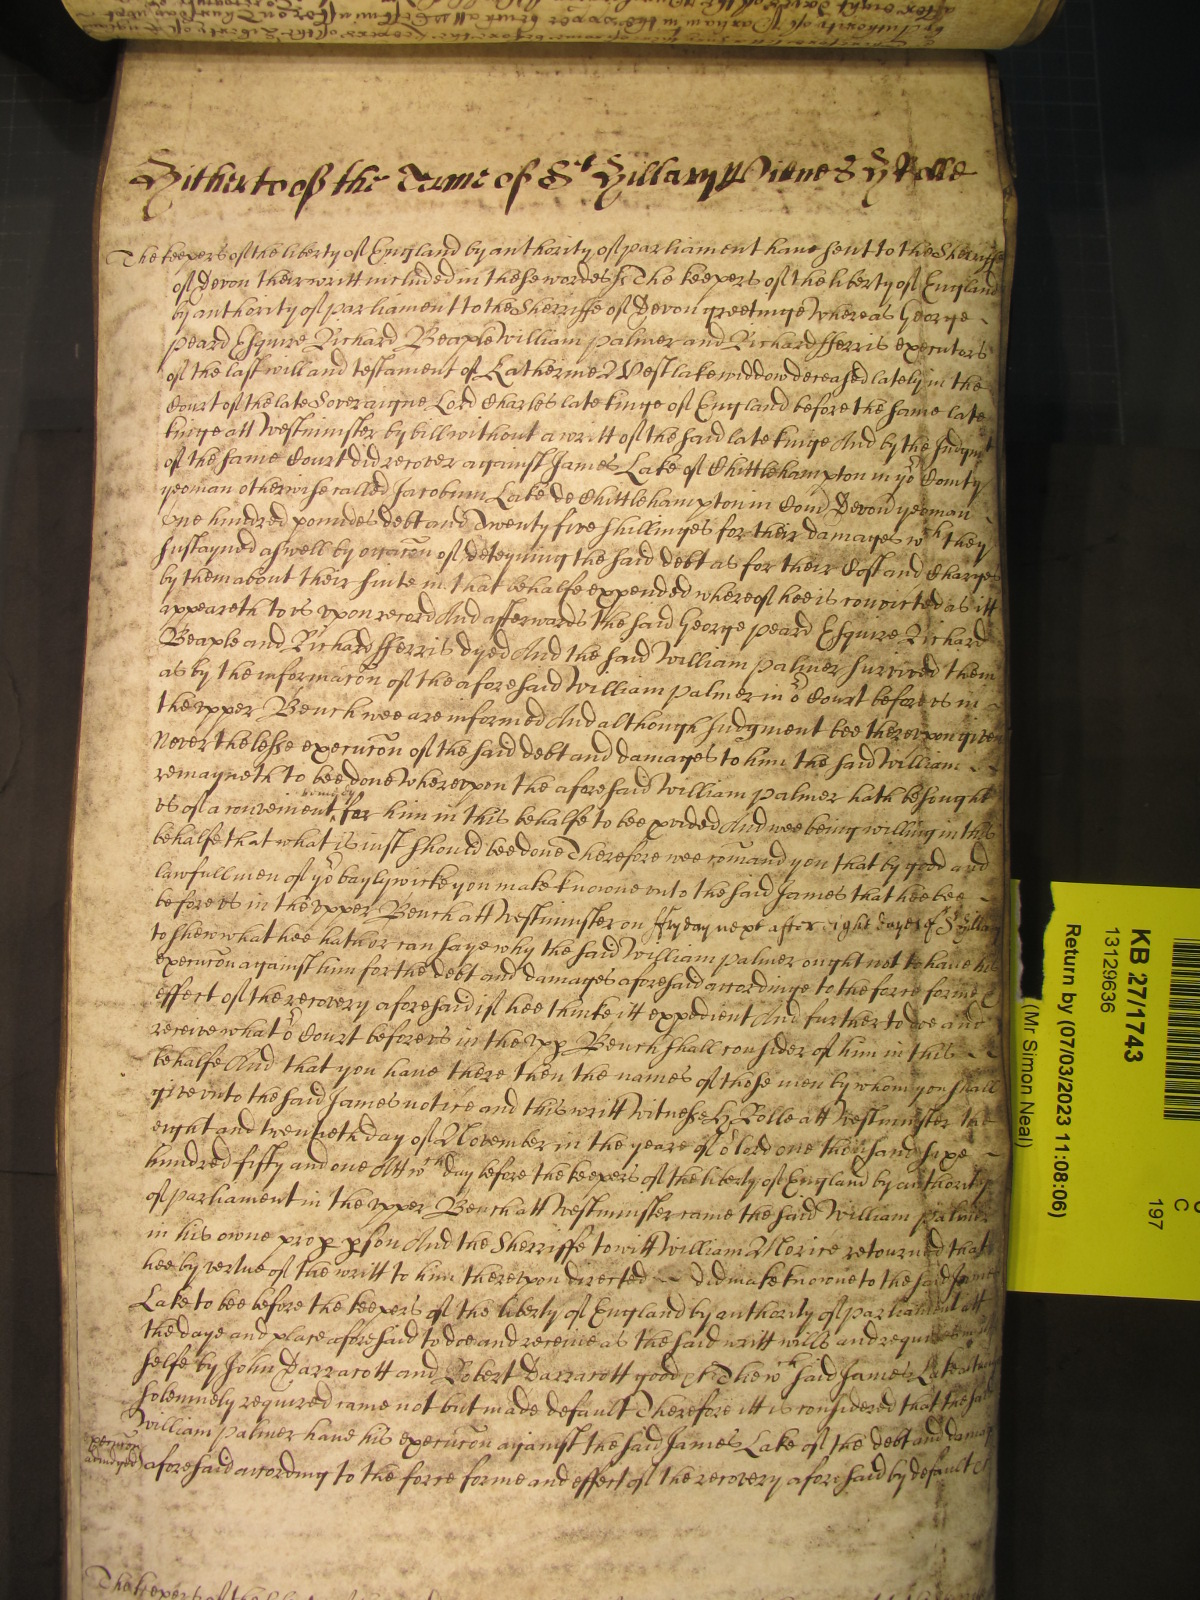 Hitherto of the Terme of St Hillary Witnes H Rolle
The keepers of the liberty of England by authority of parliament have sent to the Sherriffe
of Devon their writt included in these wordes ss The keepers of the liberty of England
by authority of parliament to the Sherriffe of Devon greetinge Whereas George
Peard Esquire Richard Beaple William Palmer and Richard fferris executors
of the last will and testament of Katherine Westlake widdow deceased lately in the
Court of the late Soveraigne Lord Charles late kinge of England before the same late
kinge att Westminster by bill without a writt of the said late kinge And by the Judgmt
of the same Court did recover against James Lake of Chittlehampton in yor County
yeoman otherwise called Jacobum Lake de Chittlehampton in Com Devon yeoman
one hundred poundes debt and Twenty five shillinges for their damages wch they
sustayned aswell by occacon of deteyning the said debt as for their Cost and Charges
by them about their suite in that behalfe expended whereof hee is convicted as itt
appeareth to us upon record And afterwards the said George Peard Esquire Richard
Beaple and Richard fferris dyed And the said William Palmer survived them
as by the informacon of the aforesaid William Palmer in or Court before us in
the upper Bench wee are informed And although Judgment bee thereupon given
Neverthelesse execucon of the said debt and damages to him the said William
remayneth to bee done Whereupon the aforesaid William Palmer hath besought
us of a convenient remedy for him in this behalfe to bee pvided And wee being willing in this
behalfe that what is iust should bee done Therefore wee comand you that by good and
lawfull men of yor baylywicke you make knowne unto the said James that hee bee
before us in the upper Bench att Westminster on ffryday next after eight dayes of St Hillary
to shew what hee hath or can saye why the said William Palmer ought not to have his
execucon against him for the debt and damages aforesaid accordinge to the force forme &
effect of the recovery aforesaid if hee thinke itt expedient And further to doe and
receive what or Court before us in the upp Bench shall consider of him in this
behalfe And that you have there then the names of those men by whom you shall
give unto the said James notice and this writt Witnesse H Rolle att Westminster the
eight and twentieth day of November in the yeare of or lord one thousand sixe
hundred fifty and one Att wch day before the keepers of the liberty of England by authority
of parliament in the upper Bench att Westminster came the said William Palmer
in his owne prop pson And the Sherriffe to witt William Morice retourned that
hee by vertue of the writt to him thereupon directed did make knowne to the said James
Lake to bee before the keepers of the liberty of England by authority of parliament att
the daye and place aforesaid to doe and receive as the said writt wills and requires
selfe by John Darracott and Robert Darracott good &c The wch said James Lake
solemnely required came not but made default Therefore itt is considered that the said
William Palmer have his execucon against the said James Lake of the debt and damages
aforesaid according to the force forme and effect of the recovery aforesaid by default &c
KB 27/1743
13129636
Return by (07/03/2023 11:08:06)
(Mr Simon Neal)
C
197